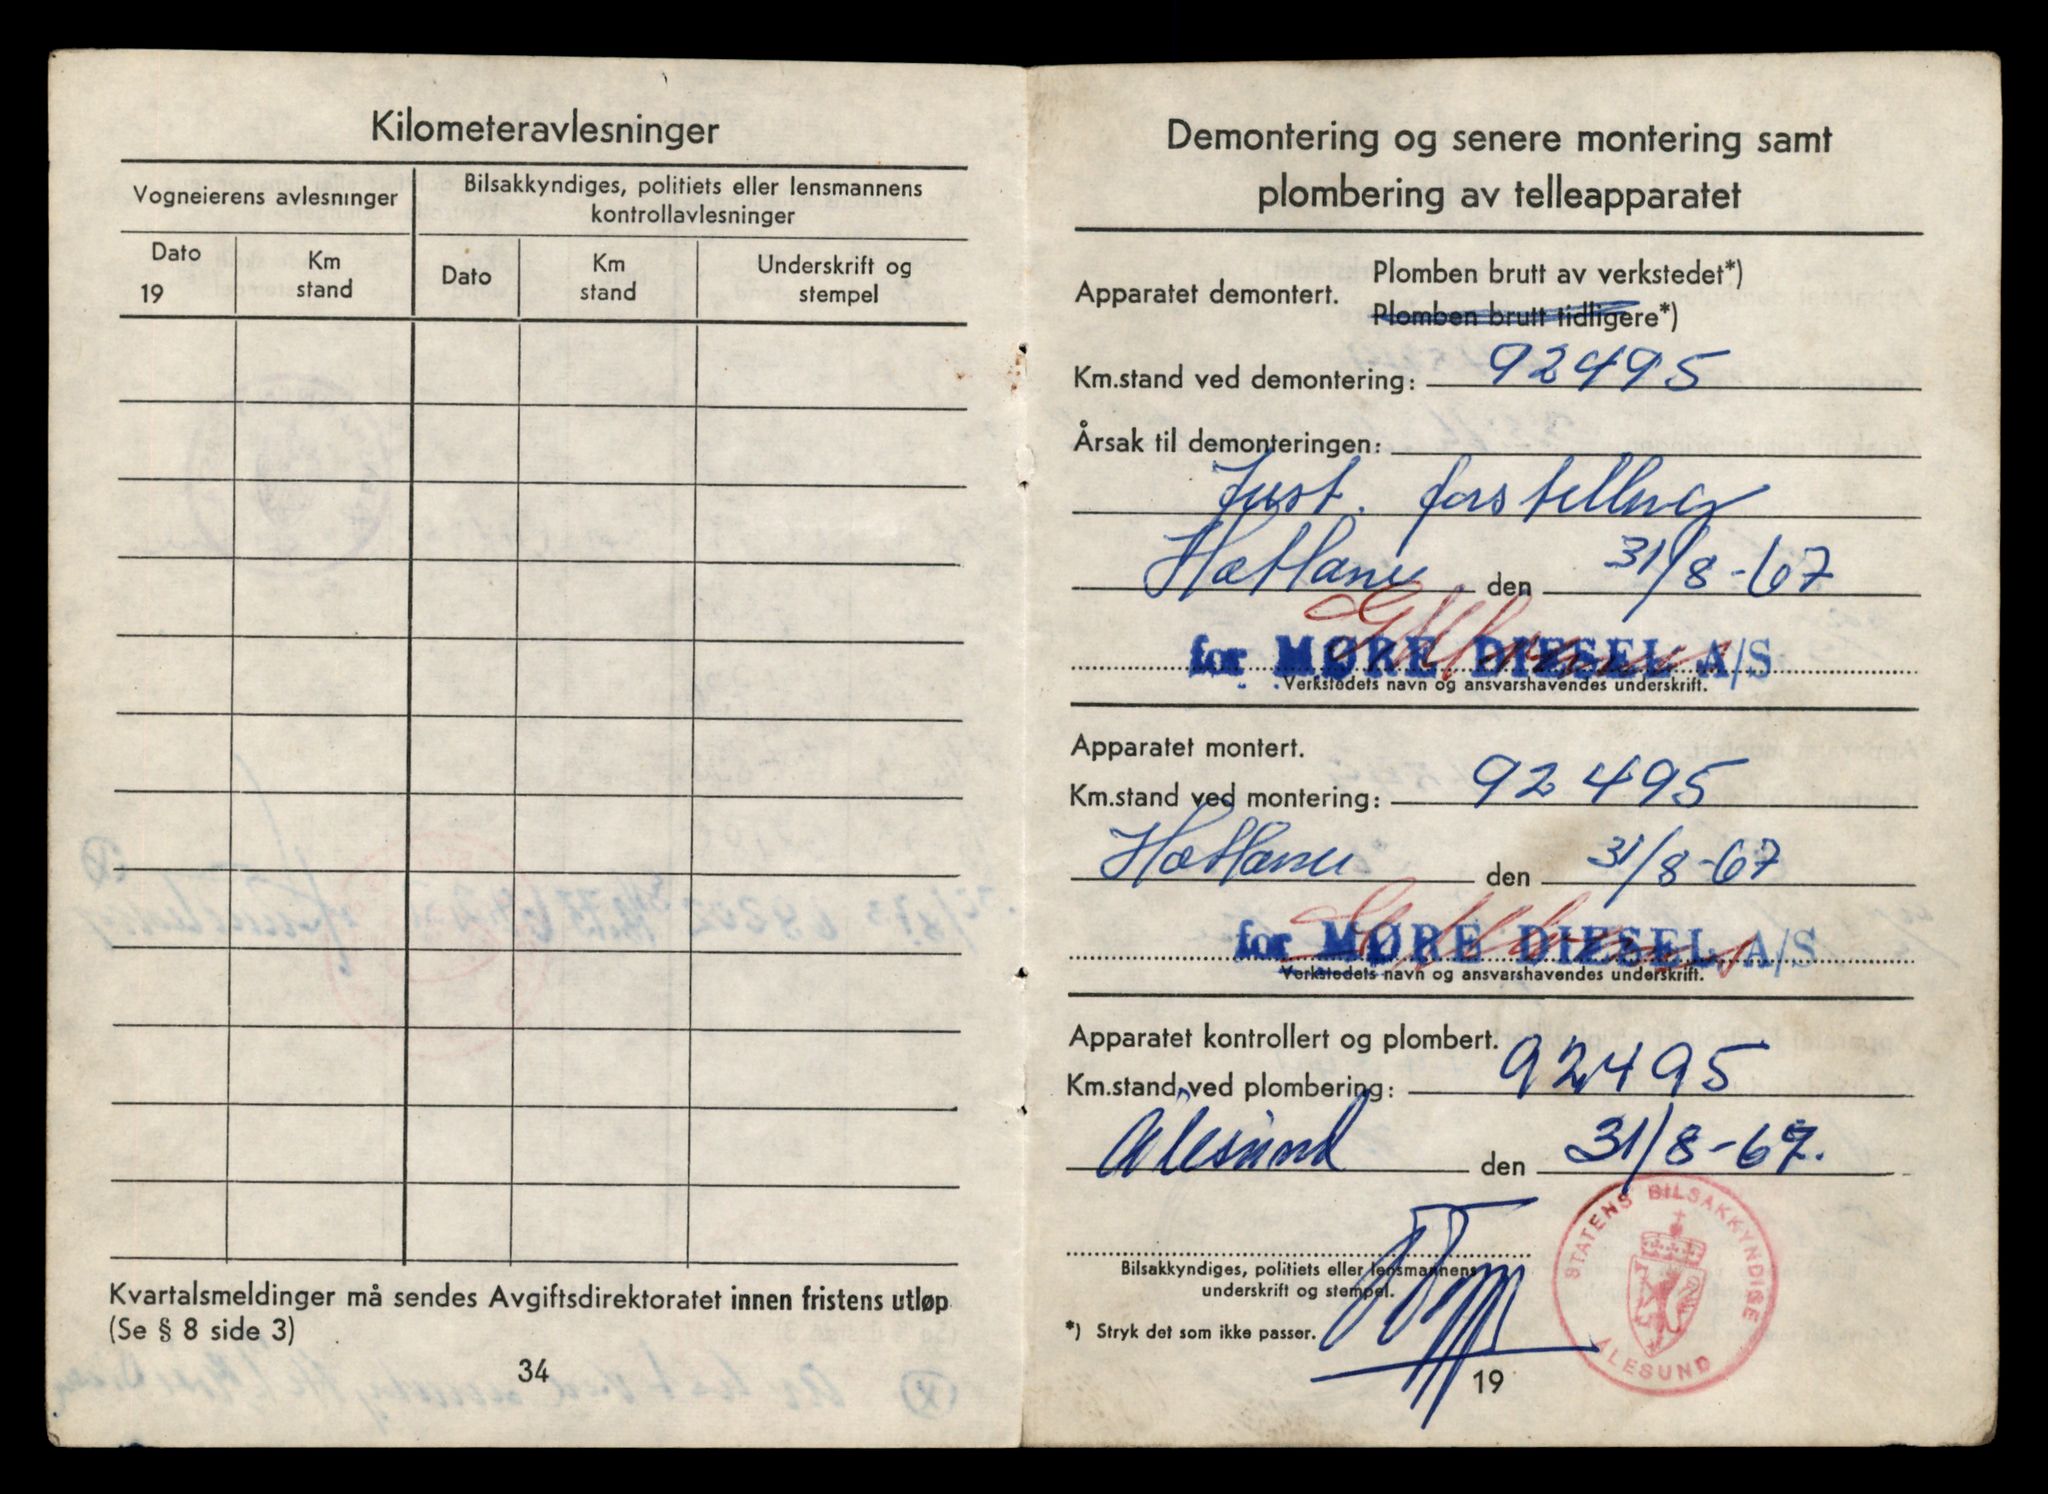 Kilometeravlesninger
Vogneierens avlesninger
Bilsakkyndiges, politiets eller lensmannens
kontrollavlesninger
Dato
19
Km
stand
Dato
Km
stand
Underskrift og
stempel
Kvartalsmeldinger må sendes Avgiftsdirektoratet innen fristens utløp
(Se § 8 side 3)
34
Demontering og senere montering samt
plombering av telleapparatet
Apparatet demontert.
Plomben brutt av verkstedet*)
Plomben brutt tidligere*)
Km.stand ved demontering: 92495
Årsak til demonteringen:
Just. forstilling
Hatlane den 31/8-67
for MØRE DIESEL A/S
Verkstedets navn og ansvarshavendes underskrift.
Apparatet montert.
Km.stand ved montering: 92495
Hatlane den 31/8-67
for MØRE DIESEL A/S
Verkstedets navn og ansvarshavendes underskrift.
Apparatet kontrollert og plombert.
Km.stand ved plombering: 92495
Ålesund den 31/8-67.
STATENS BILSAKKYNDIGE
ÅLESUND
Bilsakkyndiges, politiets eller lensmannens
underskrift og stempel.
*) Stryk det som ikke passer.
19